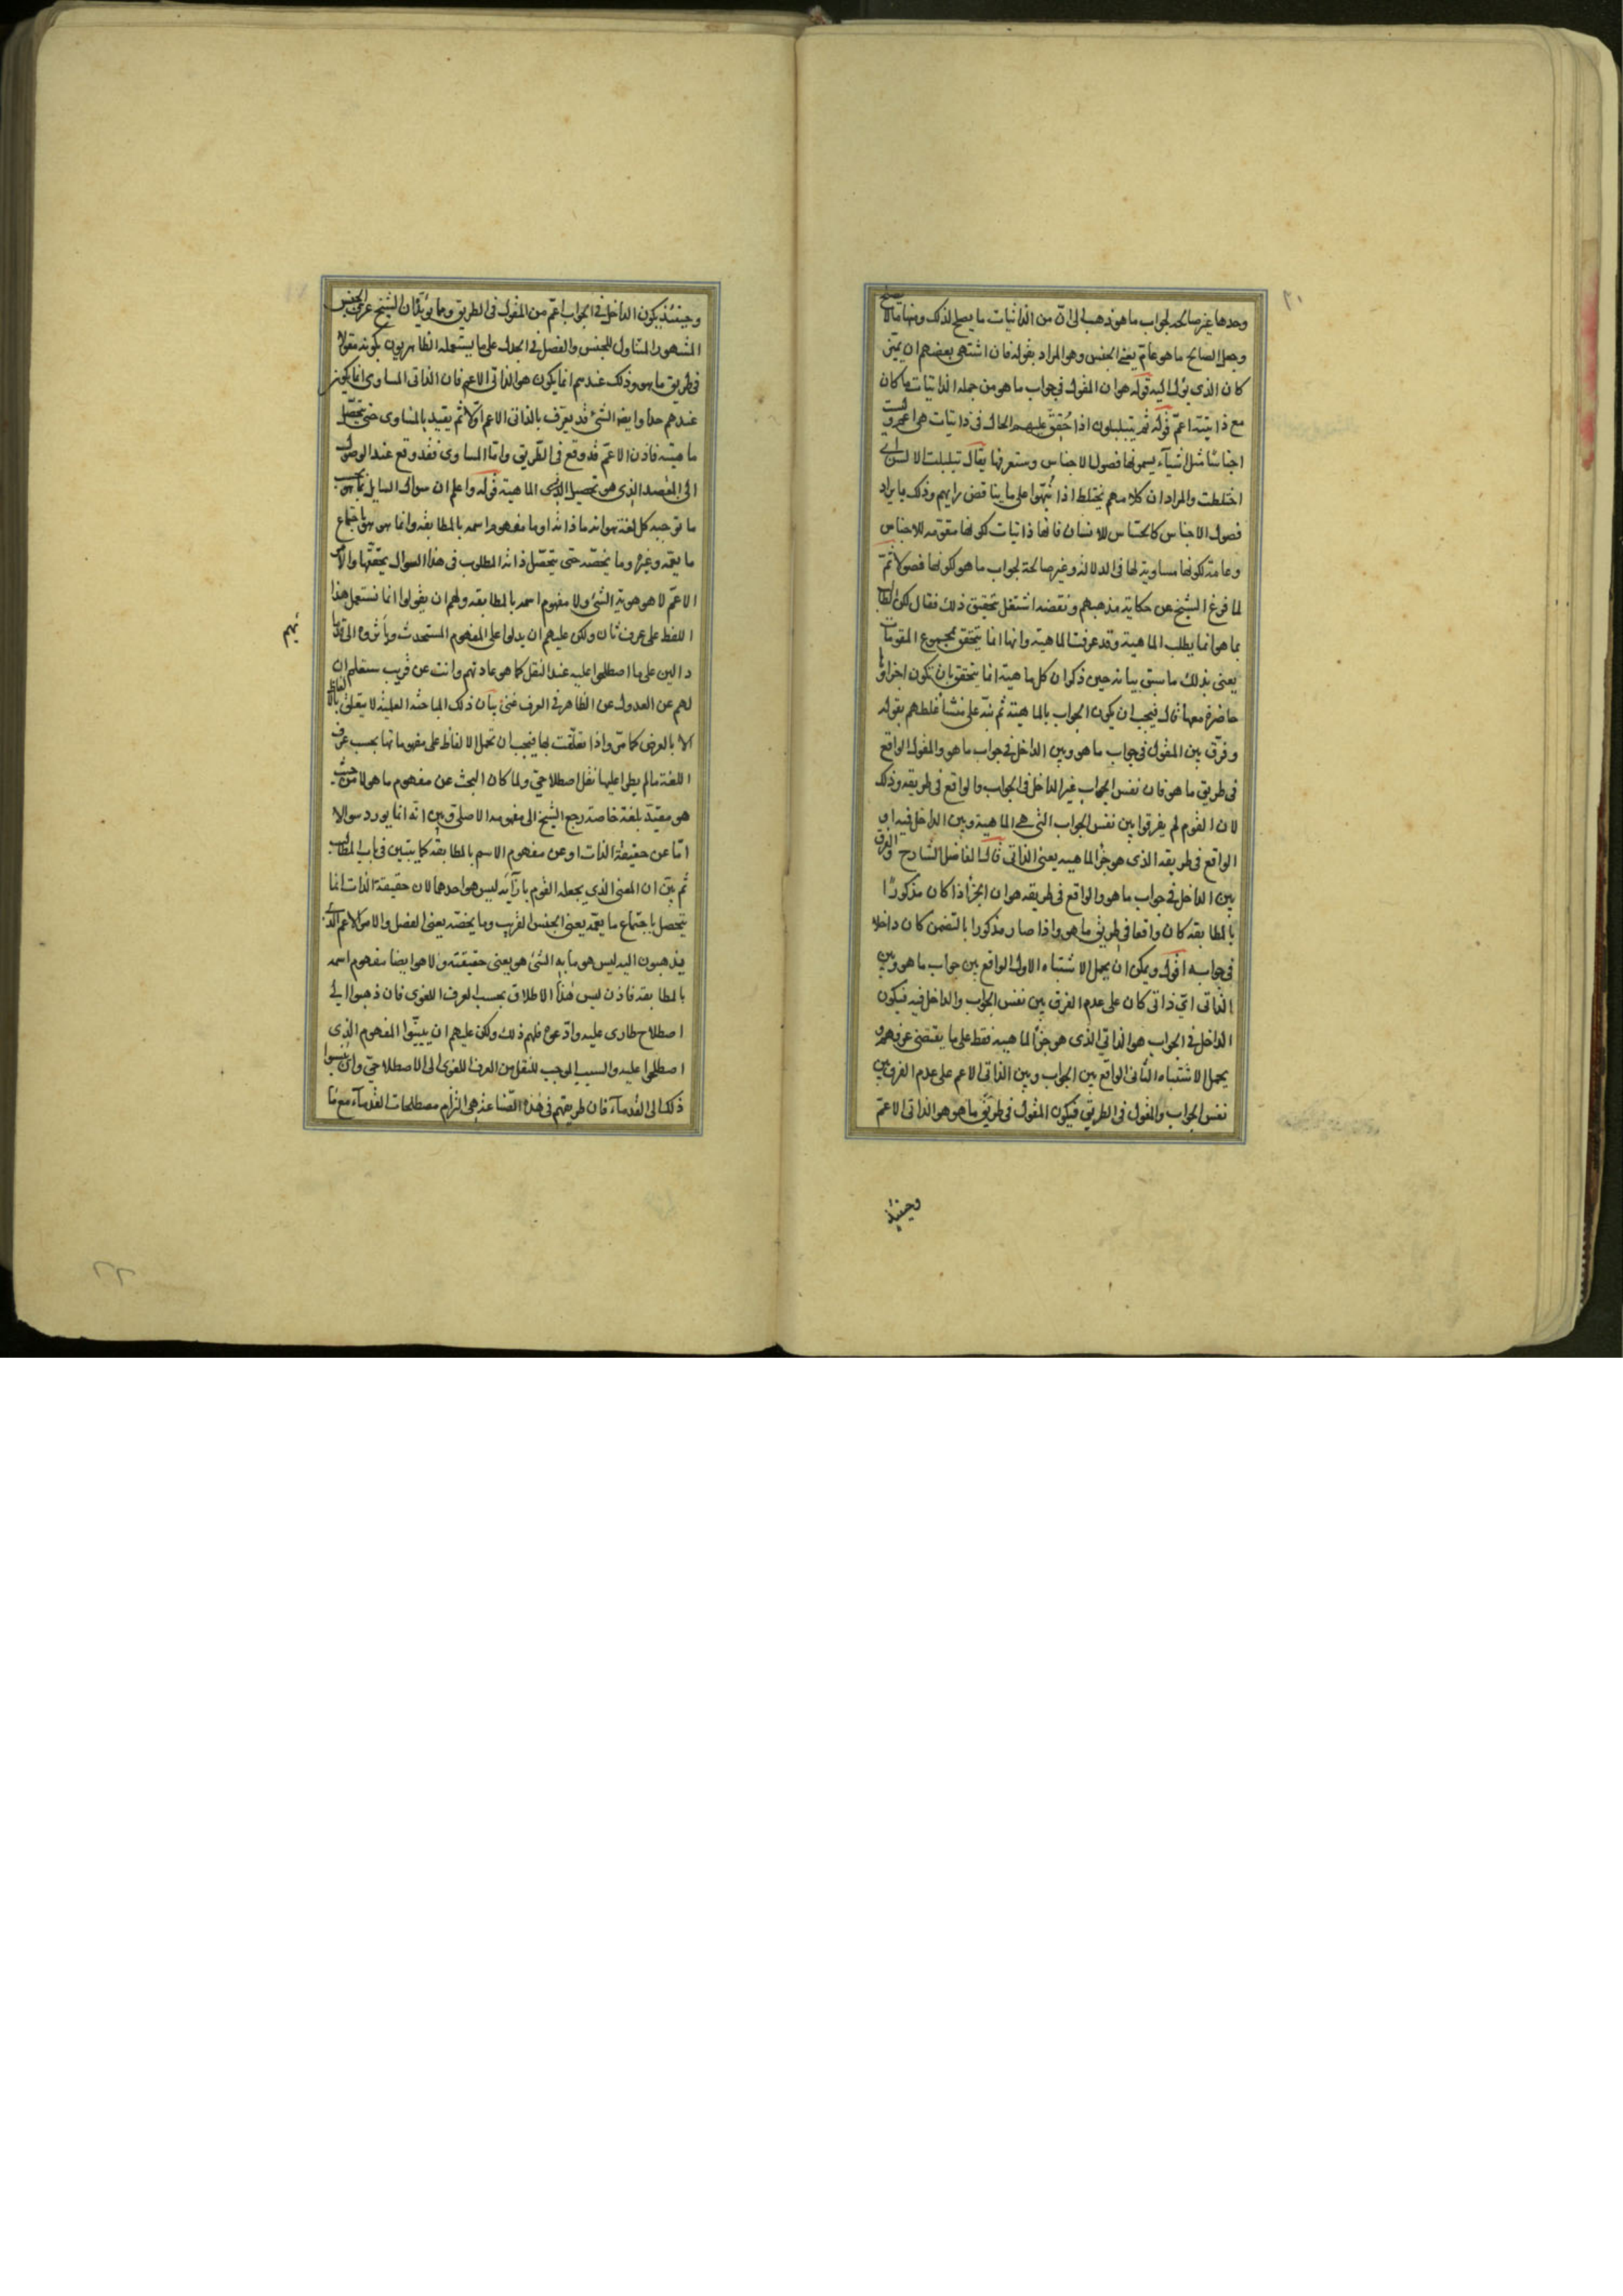 ٢١
وحدها غير صالحة لجواب ما هو ذهب الى ان من الذاتيات ما يصلح لذلك ومنها ما لا يصلح
وجعل الصالح ما هو عام يعنى الجنس وهو المراد بقوله فان اشتهى بعضهم ان يميز
كان الذى يؤل اليه قوله هو ان المقول فى جواب ما هو من جملة الذاتيات ما كان
مع ذاتيته اعم قوله ثم يتبلبلون اذا حُقق عليهم الحال فى ذاتيات هى اعم وليست
اجناسًا مثل اشيآء يسمونها فصول الاجناس وستعرفها يقال تبلبلت الالسن اى
اختلطت والمراد ان كلامهم يختلط اذا نُبّهوا على ما يناقض رايهم وذلك بايراد
فصول الاجناس كالحسّاس للانسان فانها ذاتيات لكونها مقومة للاجناس
وعامة لكونها مساوية لها فى الدلالة وغير صالحة لجواب ما هو لكونها فصولا ثم
لما فرغ الشيخ عن حكاية مذهبهم ونقضه اشتغل بتحقيق ذلك فقال لكن الطالب
بما هو انما يطلب الماهية وقد عرفت الماهية وانها انما يتحقق بمجموع المقومات
يعنى بذلك ما سبق بيانه حين ذكر ان كل ماهية انما يتحقق بان تكون اجزاؤها
حاضرة معها قال فيجب ان يكون الجواب بالماهية ثم نبّه على منشأ غلطهم بقوله
وفرق بين المقول فى جواب ما هو وبين الداخل فى جواب ما هو والمقول الواقع
فى طريق ما هو فان نفس الجواب غير الداخل فى الجواب والواقع فى طريقه وذلك
لان القوم لم يفرقوا بين نفس الجواب التى هى الماهية وبين الداخل فيه او
الواقع فى طريقه الذى هو جزء الماهيه يعنى الذاتى قال الفاضل الشارح والفرق
بين الداخل فى جواب ما هو والواقع فى طريقه هو ان الجزء اذا كان مذكورًا
بالمطابقة كان واقعا فى طريق ما هو واذا صار مذكورا بالتضمن كان داخلا
فى جوابه اقول ويمكن ان يحمل الاشتباه الاول الواقع بين جواب ما هو وبين
الذاتى اىّ ذاتى كان على عدم الفرق بين نفس الجواب والداخل فيه فيكون
الداخل فى الجواب هو الذاتى الذى هو جزء الماهيه فقط على ما يقتضى عرفهم و
يحمل الاشتباه الثانى الواقع بين الجواب وبين الذاتى الاعم على عدم الفرق بين
نفس الجواب والمقول فى الطريق فيكون المقول فى طريق ما هو هو الذاتى الاعمّ
وحينئذ
وحينئذ يكون الداخل فى الجواب اعمّ من المقول فى الطريق ومما يؤيد ان الشيخ عرف الجنس
المشهور المتناول للجنس والفصل فى الجدل على ما يستعمله الظاهريون بكونه مقولا
فى طريق ما هو وذلك عندهم انما يكون هو الذاتى الاعم فان الذاتى المساوى انما يكون
عندهم حدا وايضا الشئ قد يعرّف بالذاتى الاعم اوّلا ثم يقيد بالمساوى حتى يتحصّل
ماهيته فاذن الاعم قد وقع فى الطّريق وامّا المساوى فقد وقع عند الوصول
الى المقصد الذى هو تحصيل الماهية قوله واعلم ان سوال السايل بما هو بحسب
ما توجبه كل لغة هو انه ما ذاته او ما مفهوم اسمه بالمطابقة وانما هو هو باجتماع
ما يعمه وغيره وما يخصّه حتى يتحصّل ذاته المطلوب فى هذا السوال بتحققها والامر
الاعمّ لا هو هوية الشئ ولا مفهوم اسمه بالمطابقه ولهم ان يقولوا انا نستعمل هذا
اللفظ على عرف ثان ولكن عليهم ان يدلوا على المفهوم المستحدث ويأثروه الى قدمائهم
دالين على ما اصطلحوا عليه عند النقل كما هو عادتهم وانت عن قريب ستعلم ان
لهم عن العدول عن الظاهر فى العرف غنى بيان ذلك المباحثه العلمية لا يتعلق بالالفاظ
الا بالعرض كما مرّ واذا تعلّقت بها فيجب ان تحمل الالفاظ على مفهوماتها بحسب عرف
اللغة ما لم يطرا عليها نقل اصطلاحى ولما كان البحث عن مفهوم ما هو لا من حيث
هو مقيّد بلغة خاصة رجع الشيخ الى مفهومه الاصلى وبين انّه انما يورد سوالا
امّا عن حقيقة الذات او عن مفهوم الاسم بالمطابقة كما يتبين فى باب المطالب
ثم بيّن ان المعنى الذى يجعله القوم بازآئه ليس هو احدهما لان حقيقة الذات انما
يتحصل باجتماع ما يعمّه يعنى الجنس القريب وما يخصّه يعنى الفصل والامر الاعم الذى
يذهبون اليه ليس هو ما به الشئ هو يعنى حقيقته ولا هو ايضا مفهوم اسمه
بالمطابقه فاذن ليس هذا الاطلاق بحسب العرف اللغوى فان ذهبوا الى
اصطلاح طارى عليه وادّعوه فلهم ذلك ولكن عليهم ان يبيّنوا المفهوم الذى
اصطلحوا عليه والسبب الموجب للنقل من العرف اللغوى الى الاصطلاحى وان ينسبوا
ذلك الى القدمآء فان طريقتهم فى هذه الصّناعة هى التزام مصطلحات القدمآء مع ما
٢٢